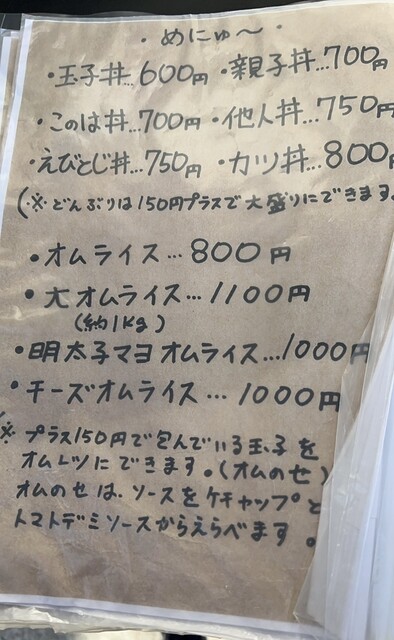 ・めにゅ〜・
・玉子丼…600円 ・親子丼…700円
・このは丼…700円 ・他人丼…750円
・えびとじ丼…750円 ・カツ丼…800円
(※どんぶりは150円プラスで大盛りにできます。
・オムライス…800円
・大オムライス…1100円
(約1kg)
・明太子マヨオムライス…1000円
・チーズオムライス…1000円
※プラス150円で包んでいる玉子を
オムレツにできます。(オムのせ)
オムのせは、ソースをケチャップと
トマトデミソースからえらべます。